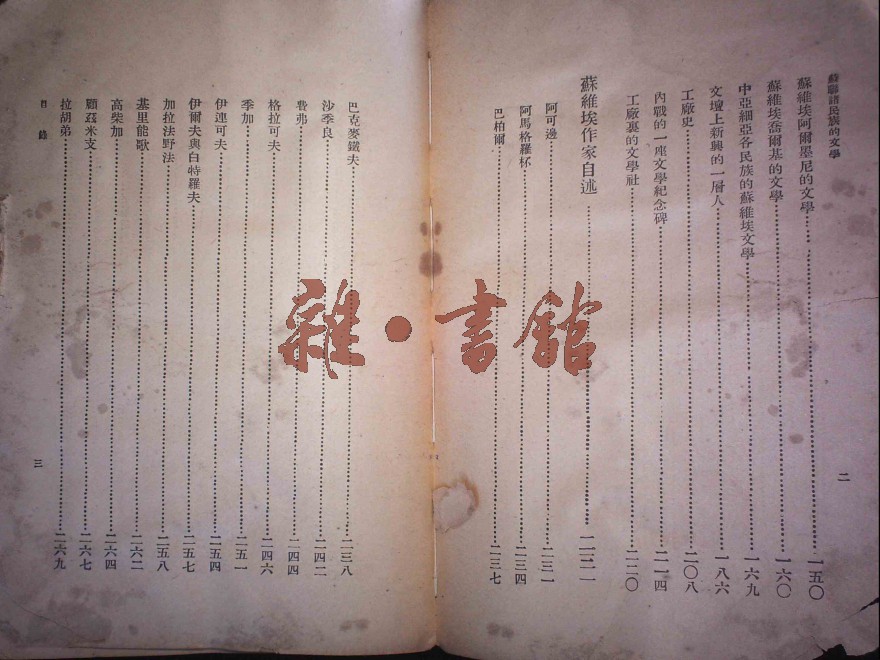 蘇聯諸民族的文學
二
蘇維埃阿爾墨尼的文學……一五〇
蘇維埃喬爾基的文學……一六〇
中亞細亞各民族的蘇維埃文學……一六九
文壇上新興的一層人……一八六
工廠史……二〇八
內戰的一座文學紀念碑……二一四
工廠裏的文學社……二二〇
蘇維埃作家自述……二三一
阿可邊……二三一
阿馬格羅杯……二三四
巴柏爾……二三七
巴克麥鐵夫……二三八
沙季良……二四二
費弗……二四四
格拉可夫……二四六
季加……二五一
伊連可夫……二五四
伊爾夫與白特羅夫……二五七
加拉法野法……二五八
基里能歌……二六二
高柴加……二六四
顧茲米支……二六七
拉胡弟……二六九
目錄
三
雜·書館